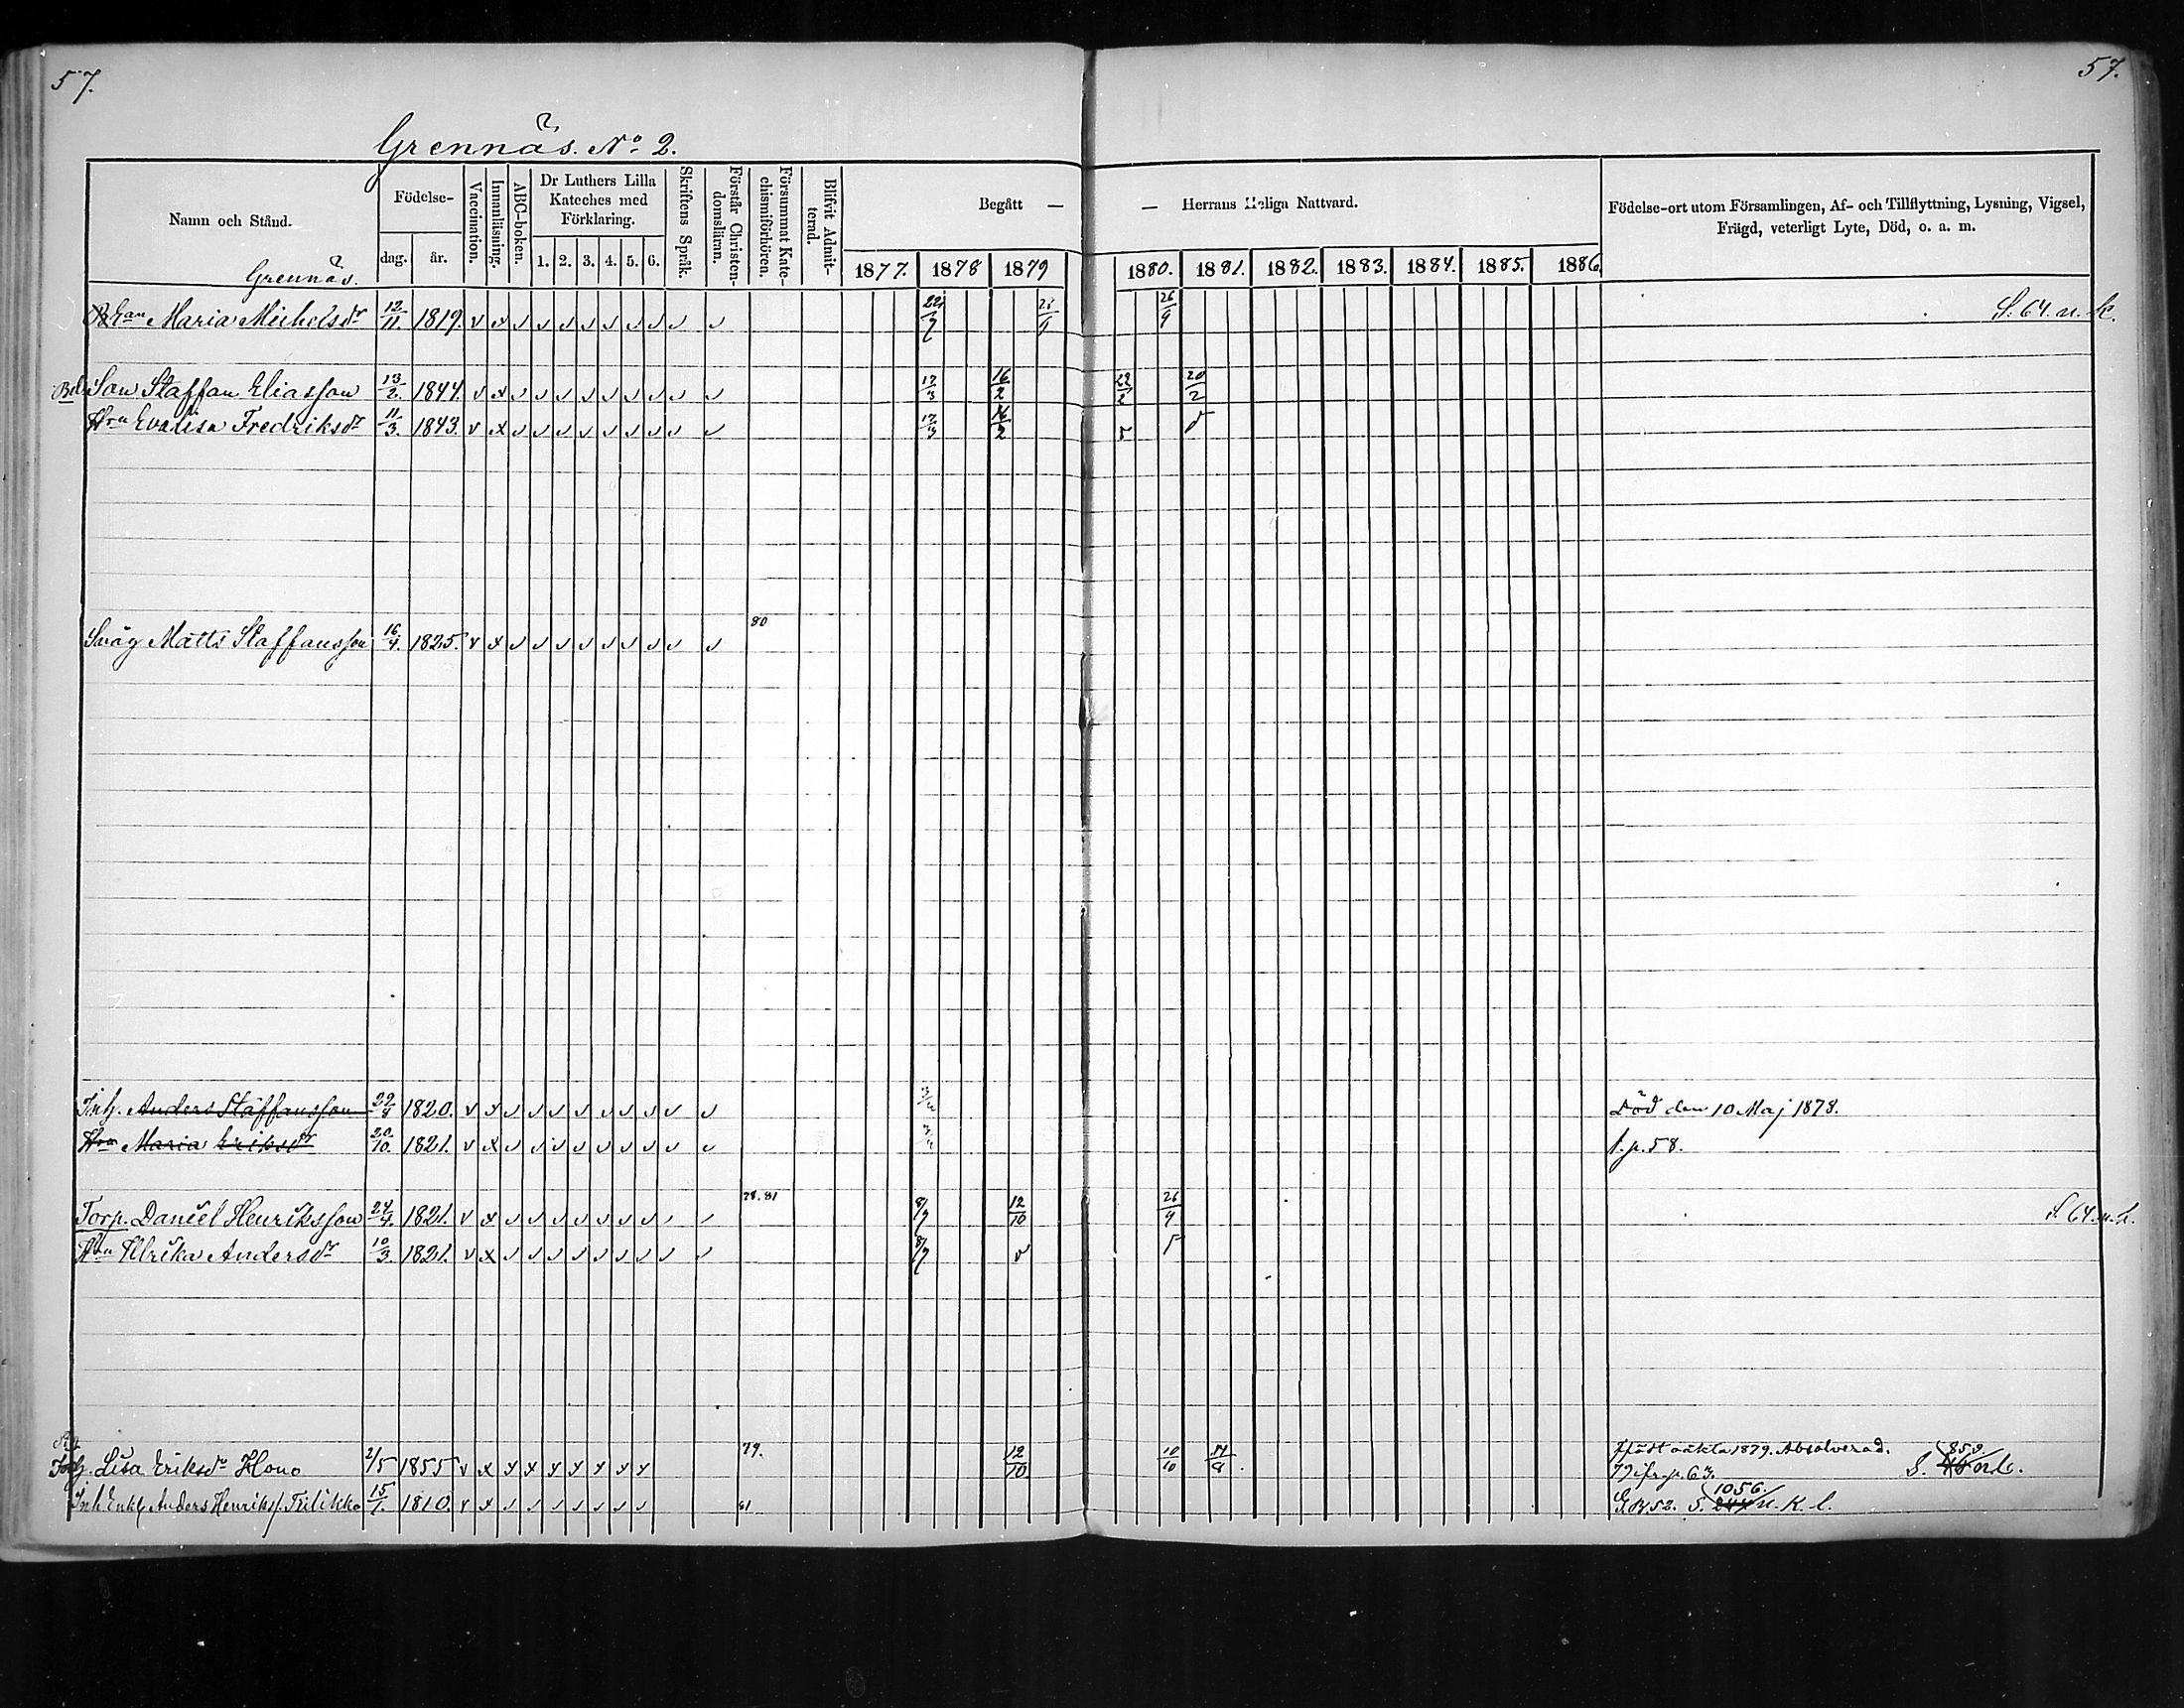 57.
57.
Grennäs. No 2.
Namn och Stånd.
Födelse-
dag.
år.
Vaccination.
Innanläsning.
ABC-boken.
Dr Luthers Lilla
Kateches med
Förklaring.
1. 2. 3. 4. 5. 6.
Skriftens Språk.
Förstår Christen-
domsläran.
Försummat Kate-
chismiförhören.
Blifvit Admit-
terad.
Begått — — Herrans Heliga Nattvard.
1877. 1878 1879 1880. 1881. 1882. 1883. 1884. 1885. 1886.
Födelse-ort utom Församlingen, Af- och Tillflyttning, Lysning, Vigsel,
Frägd, veterligt Lyte, Död, o. a. m.
Grennäs.
Maria Michelsdr 12/11 1819. v x 22/7 26/9 S. 64. n. k.
Son Staffan Eliasson 13/2. 1844. v x 17/3 16/2 22/2 20/2
Hru Evalisa Fredriksdr 11/3. 1843. v x 17/3 16/2
80
Svåg Matts Staffansson 16/4. 1825. v x
Inh. Anders Staffansson 22/4 1820. v x Död den 10 Maj 1878.
Hru Maria Eriksdr 20/10. 1821. v x f. p. 58.
Torp. Daniel Henriksson 24/4. 1821. v x 78. 81 8/7 12/10 26/9 S. 64. n. k.
Hru Ulrika Andersdr 10/3. 1821. v x 8/7
Lisa Eriksdr Hono 2/5 1855 v x 79. 12/10 10/10 Födt oäkta 1879. Absolverad. 859.
79 ifr. p. 63. S.
Inh. Enkl. Anders Henrikss. 15/1. 1810. v x 81 1056.
G. B. 52. S. n. K. l.